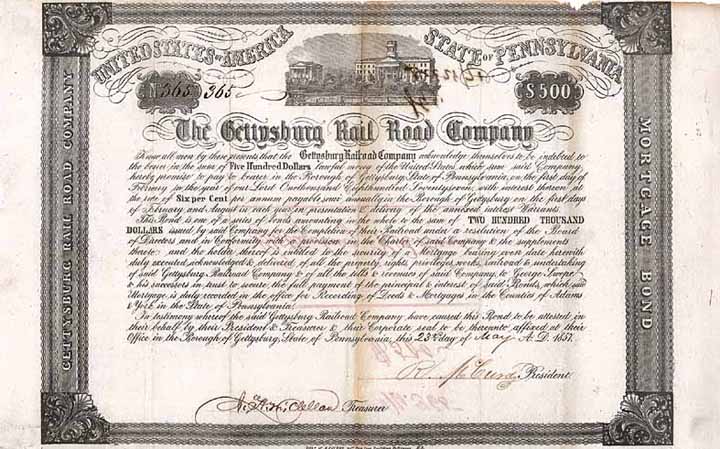 UNITED STATES OF AMERICA
STATE OF PENNSYLVANIA
No 365 365
$500
The Gettysburg Rail Road Company
Know all men by these presents that the Gettysburg Railroad Company acknowledge themselves to be indebted to
the bearer in the sum of Five Hundred Dollars lawful money of the United States, which sum said Company
hereby promise to pay to bearer in the Borough of Gettysburg, State of Pennsylvania, on the first day of
February in the year of our Lord One thousand Eight hundred Seventy seven, with interest thereon at
the rate of Six per Cent per annum payable semi annually in the Borough of Gettysburg on the first days
of February and August in each year, on presentation & delivery of the annexed interest Warrants.
This Bond is one of a series of bonds amounting in the whole to the sum of TWO HUNDRED THOUSAND
DOLLARS issued by said Company for the Completion of their Railroad under a resolution of the Board
of Directors, and in Conformity with provision in the Charter of said Company & the supplements
thereto and the holder thereof is entitled to the security of a Mortgage bearing even date herewith
duly executed, acknowledged & delivered of all the property, rights, privileges, roads, railroad & undertaking
of said Gettysburg Railroad Company & of all the tolls & revenues of said Company, to George Swope
& his successors in trust to secure the full payment of the principal & interest of said Bonds, which said
Mortgage is duly recorded in the office for Recording of Deeds & Mortgages in the Counties of Adams
& York in the State of Pennsylvania.
In testimony whereof the said Gettysburg Railroad Company have caused this Bond to be attested in
their behalf by their President & Treasurer & their Corporate seal to be thereunto affixed at their
Office in the Borough of Gettysburg, State of Pennsylvania, this 23d day of May A.D. 1857.
R. McCurdy President.
McClellan Treasurer
GETTYSBURG RAIL ROAD COMPANY
MORTGAGE BOND